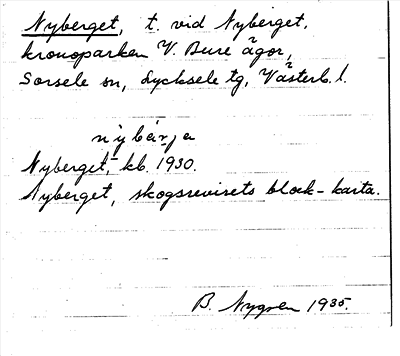 Nyberget, t. vid Nyberget,
kronoparken V. Bure ägor,
Sorsele sn, Lycksele tg, Västerb. l.
nybärja
Nyberget, kb. 1930.
Nyberget, skogsrevisets block-karta.
B. Nygren 1935.